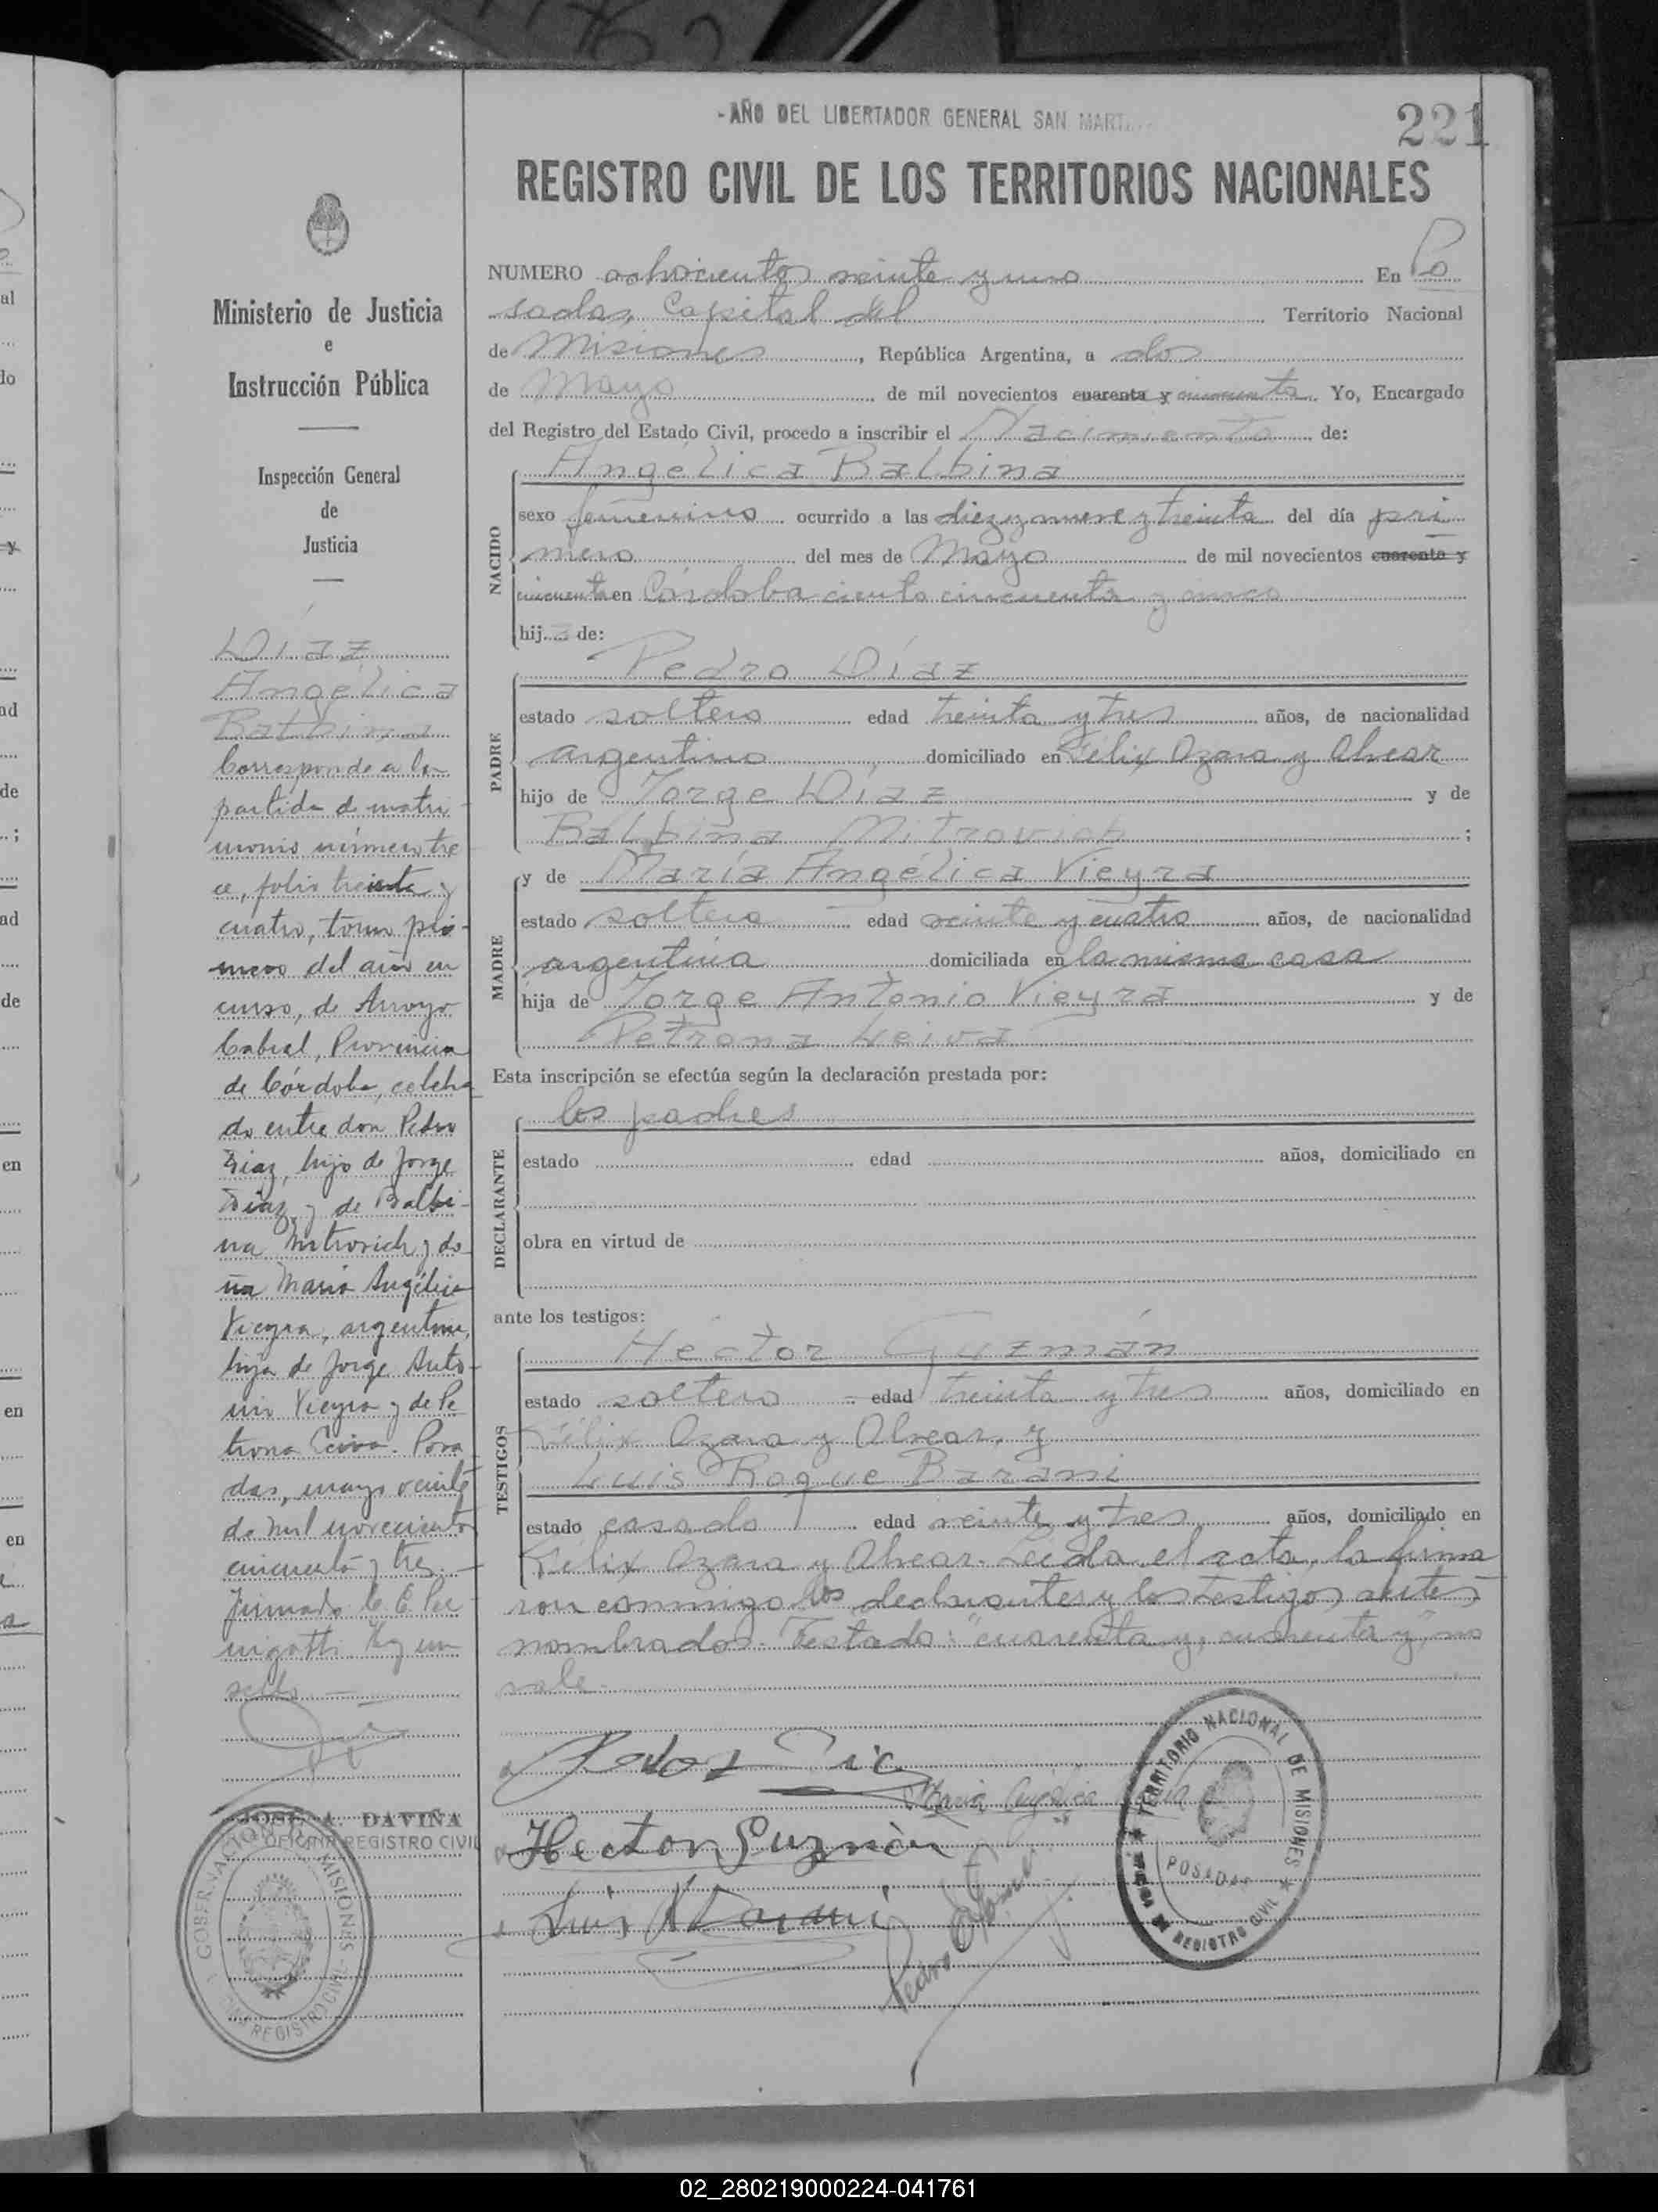 - AÑO DEL LIBERTADOR GENERAL SAN MART
221
REGISTRO CIVIL DE LOS TERRITORIOS NACIONALES
Ministerio de Justicia
e
Instrucción Pública
Inspección General
de
Justicia
Díaz
Angélica
Balbina
Corresponde a la
partida de matri
monio número tre
ce, folio treinta y
cuatro, tomo pri-
mero del año en
curso, de Arroyo
Cabral, Provincia
de Córdoba, celebra
do entre don Pedro
Díaz, hijo de Jorge
Díaz y de Balbi-
na Mitrovich y do
ña María Angélica
Vieyra, argentina,
hija de Jorge Anto-
nio Vieyra y de Pe
trona Leiva. Posa
das, mayo veinte
de mil novecientos
cincuenta y tres.-
Firmado C. E.
Hay un
sello.-
JOSÉ A. DAVIÑA
OFICINA REGISTRO CIVIL
GOBERNACION MISIONES
REGISTRO CIVIL
NUMERO ochocientos veinte y uno En Po
sadas, Capital del Territorio Nacional
de Misiones, República Argentina, a dos
de Mayo de mil novecientos cuarenta y cincuenta. Yo, Encargado
del Registro del Estado Civil, procedo a inscribir el Nacimiento de:
NACIDO
Angélica Balbina
sexo femenino ocurrido a las diez y nueve y treinta del día pri
mero del mes de Mayo de mil novecientos cuarenta y
cincuenta en Córdoba ciento cincuenta y cinco
hija de:
PADRE
Pedro Díaz
estado soltero edad treinta y tres años, de nacionalidad
argentino, domiciliado en Félix Azara y Alvear
hijo de Jorge Díaz y de
Balbina Mitrovich;
MADRE
y de María Angélica Vieyra
estado soltera edad veinte y cuatro años, de nacionalidad
argentina domiciliada en la misma casa
hija de Jorge Antonio Vieyra y de
Petrona Leiva
Esta inscripción se efectúa según la declaración prestada por:
DECLARANTE
los padres
estado edad años, domiciliado en
obra en virtud de
ante los testigos:
TESTIGOS
Héctor Guzmán
estado soltero edad treinta y tres años, domiciliado en
Félix Azara y Alvear, y
Luis Roque Barani
estado casado edad veinte y tres años, domiciliado en
Félix Azara y Alvear. Leída el acta, la firma
ron conmigo los declarantes y los testigos antes
nombrados. Testado: "cuarenta y, cuarenta y", no
vale.
María Angélica
Hector Guzmán
Luis R Barani
Pedro
TERRITORIO NACIONAL DE MISIONES
POSADAS
REGISTRO CIVIL
al
do
y
ad
de
;
ad
de
en
en
en
02_280219000224-041761